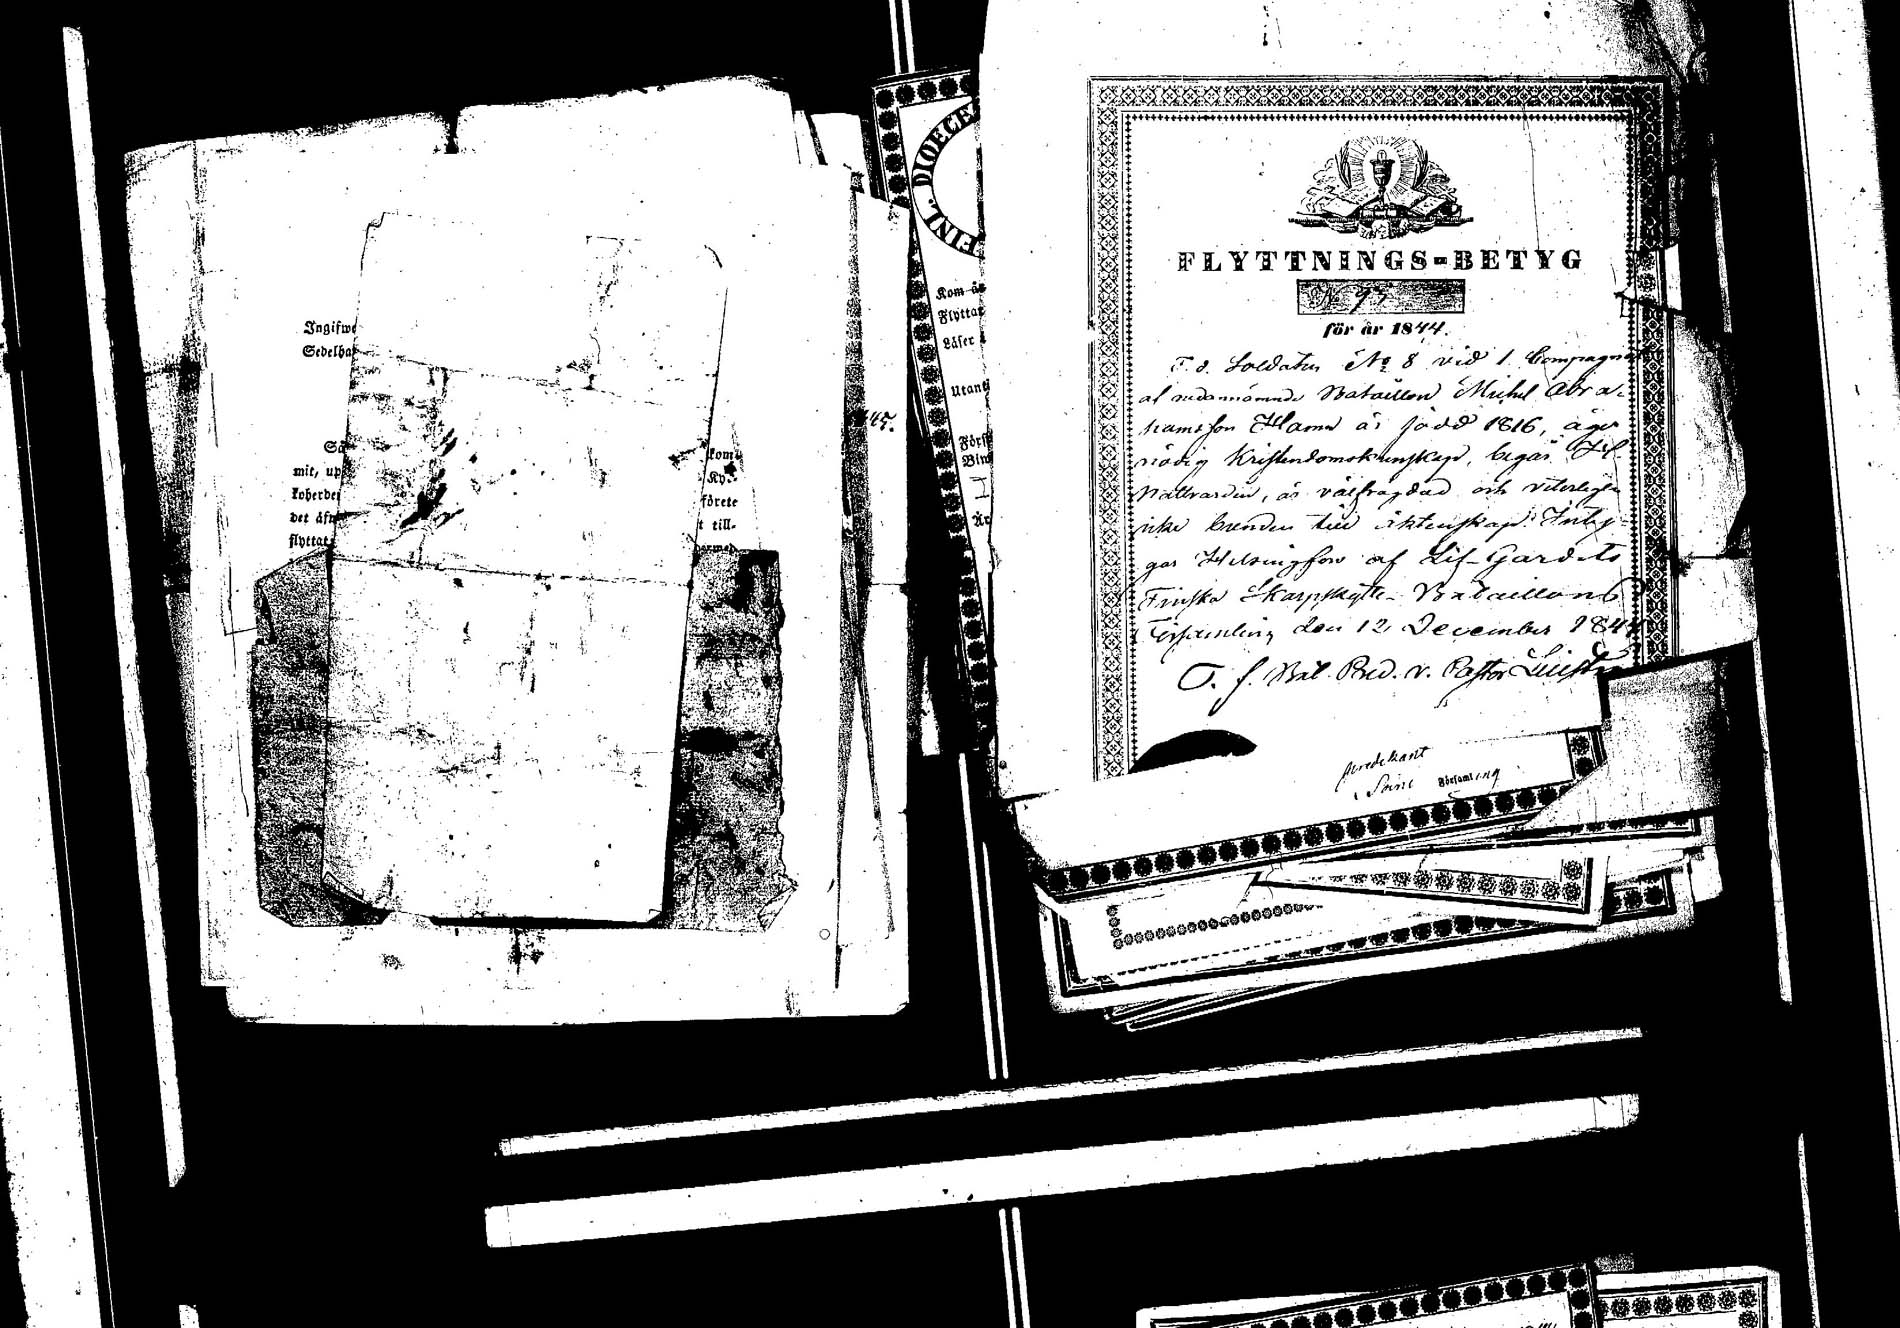 Ingifwe
Sedelha
Så
mit, up
koherde
det åfw
flyttat
kom
Ky
förete
t till-
45.
FINL. DIOECE
Kom
Flyttat
Läser
Utant
Förs
FLYTTNINGS-BETYG
No 97
för år 1844.
F. d. Soldaten No 8 vid 1. Compagni
af nedannämnde Bataillon Michel Abra-
hamsson Hamn är född 1816, äger
nödig Kristendomskunskap, begår H.
Nattvarden, är välfrägdad och veterligen
icke bunden till äktenskap. Inty-
gas Helsingfors af Lif-Gardets
Finska Skarpskytte-Bataillons
Församling den 12 December 1844
T. f. Bat. Pred. v. Pastor
predikant
Församling